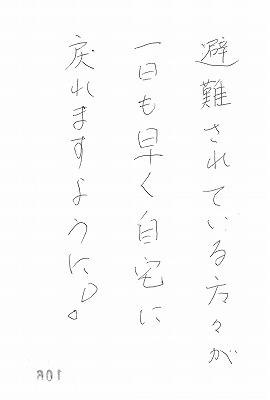 避難されている方々が
一日も早く自宅に
戻れますように。
108